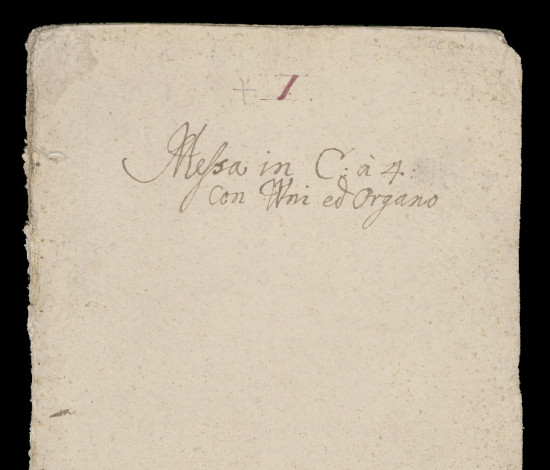 + 1
Messa in C. à 4.
Con VVni ed Organo